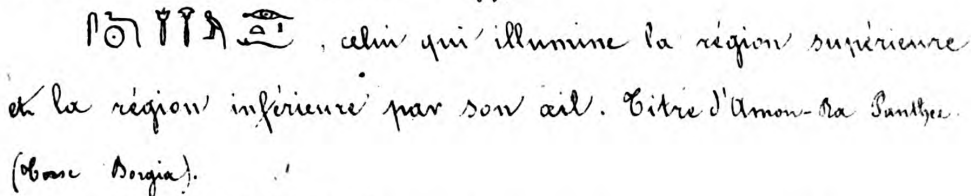 , celui qui illumine la région supérieure
et la région inférieure par son œil. Titre d'Amon-Ra Panthée.
(Torse Borgia).